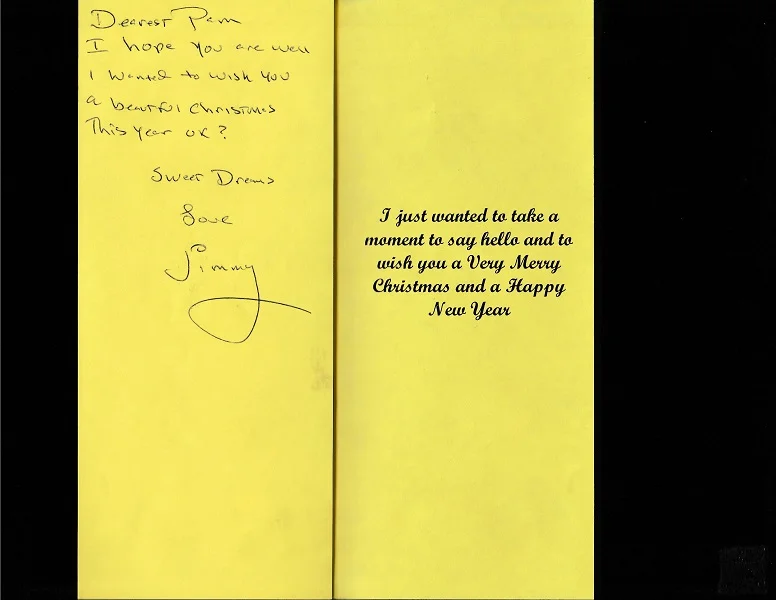 Dearest Pam
I hope you are well
I wanted to wish you
a beautful Christmas
This year ok?
Sweet Dreams
Love
Jimmy
I just wanted to take a
moment to say hello and to
wish you a Very Merry
Christmas and a Happy
New Year